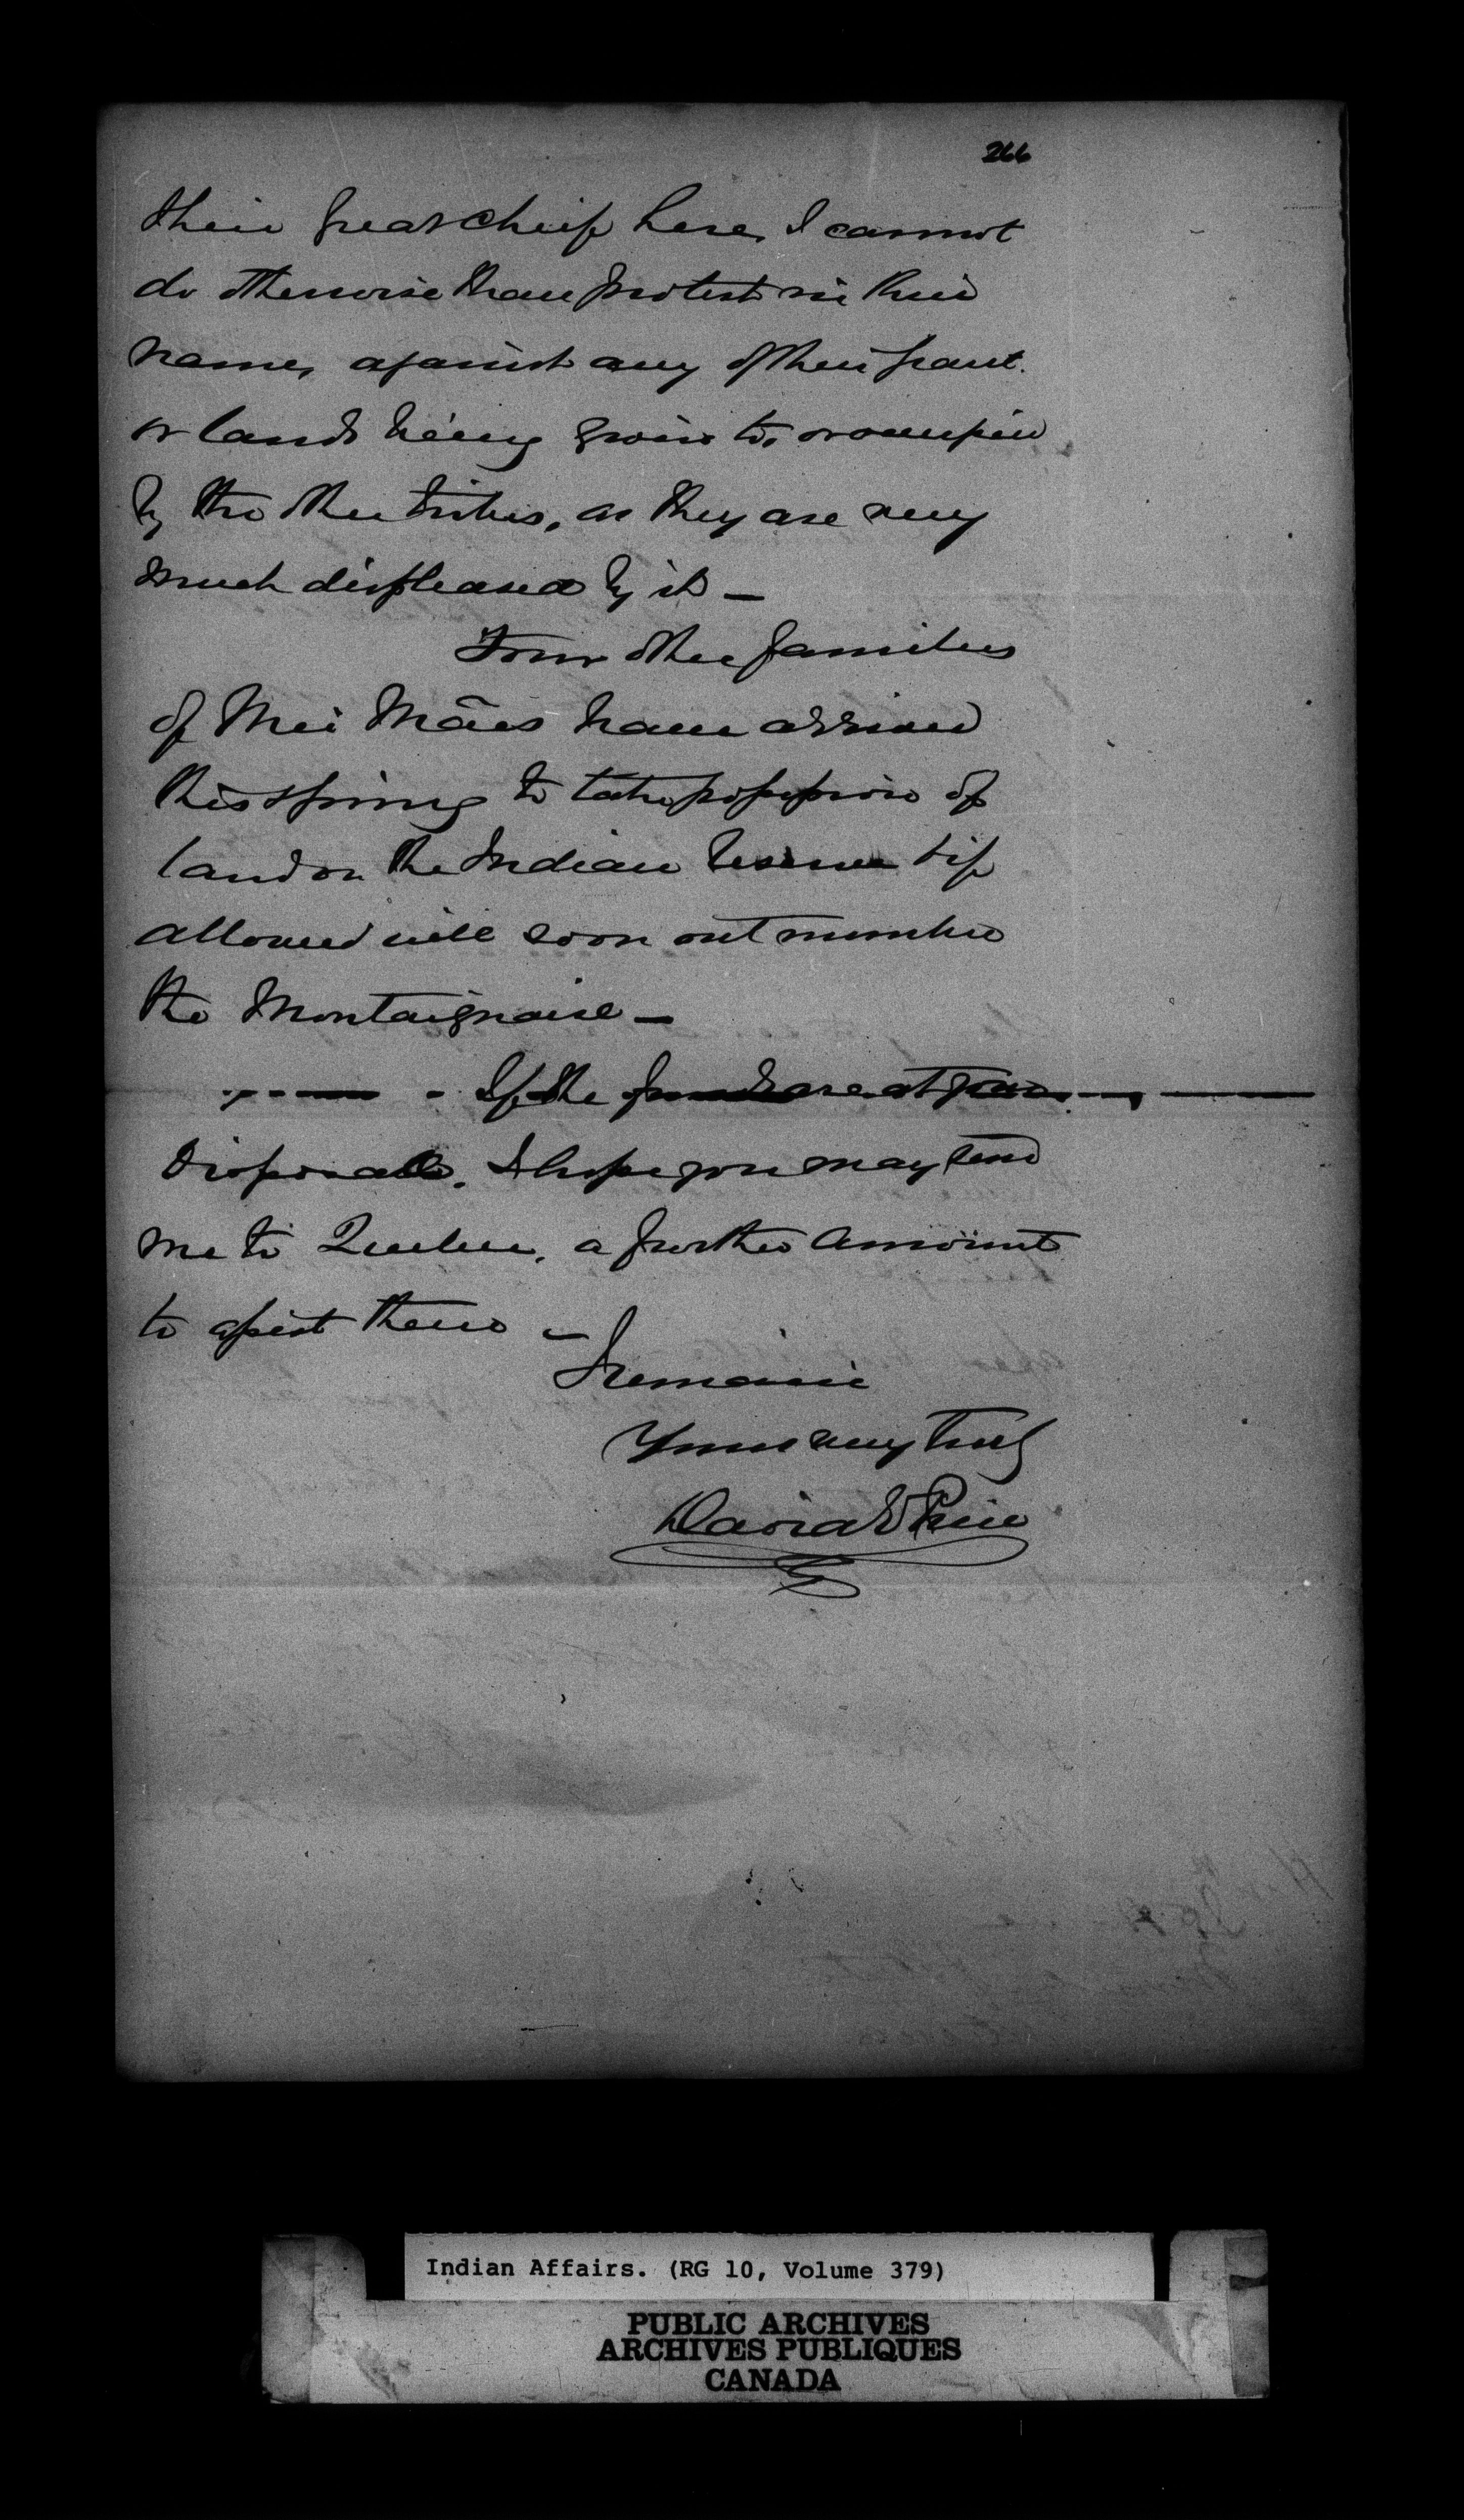 266
their great Chief here, I cannot
do otherwise than protest in their
name, against any of their grant
or lands being given to, or occupied
by the other tribes, as they are very
much displeased by it —
Four other families
of Mic Macs have arrived
this spring to take possession of
land on the Indian Reserve & if
allowed will soon out number
the Montaignaise —
If the funds are at your
disposal, I hope you may send
me to Quebec, a further amount
to assist them —
I remain
Yours very truly
David E Price
Indian Affairs. (RG 10, Volume 379)
PUBLIC ARCHIVES
ARCHIVES PUBLIQUES
CANADA